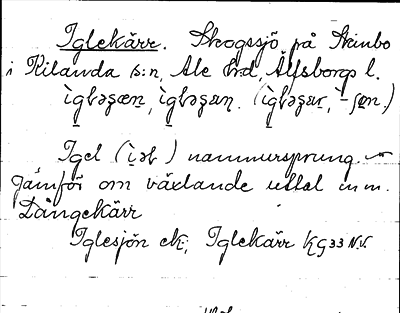 Iglekärr. Skogssjö på Skinbo
i Kilanda s:n, Ale hrd, Älfsborgs l.
Igel ( ) namnursprung.
Jämför om växlande uttal m.m.
Långekärr
Iglesjön ek; Iglekärr KG 33 N.V.